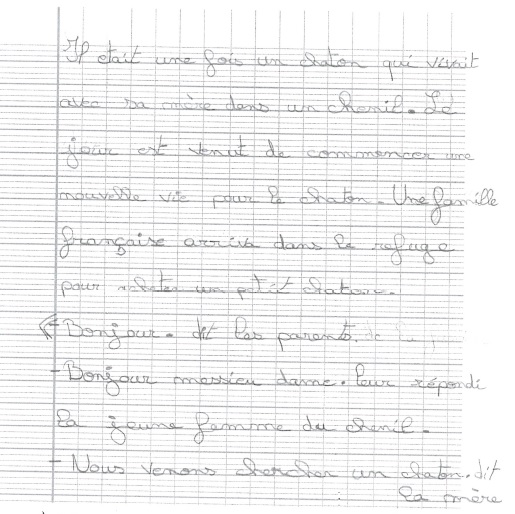 Il etait une fois un chaton qui vivait
avec sa mère dans un chenil. Le
jour est venut de commencer une
nouvelle vie pour le chaton. Une famille
française arriva dans le refuge
pour acheter un petit chaton.
- Bonjour. dit les parents.
- Bonjour messieu dame. leur répondi
la jeune femme du chenil.
- Nous venons chercher un chaton. dit
la mère